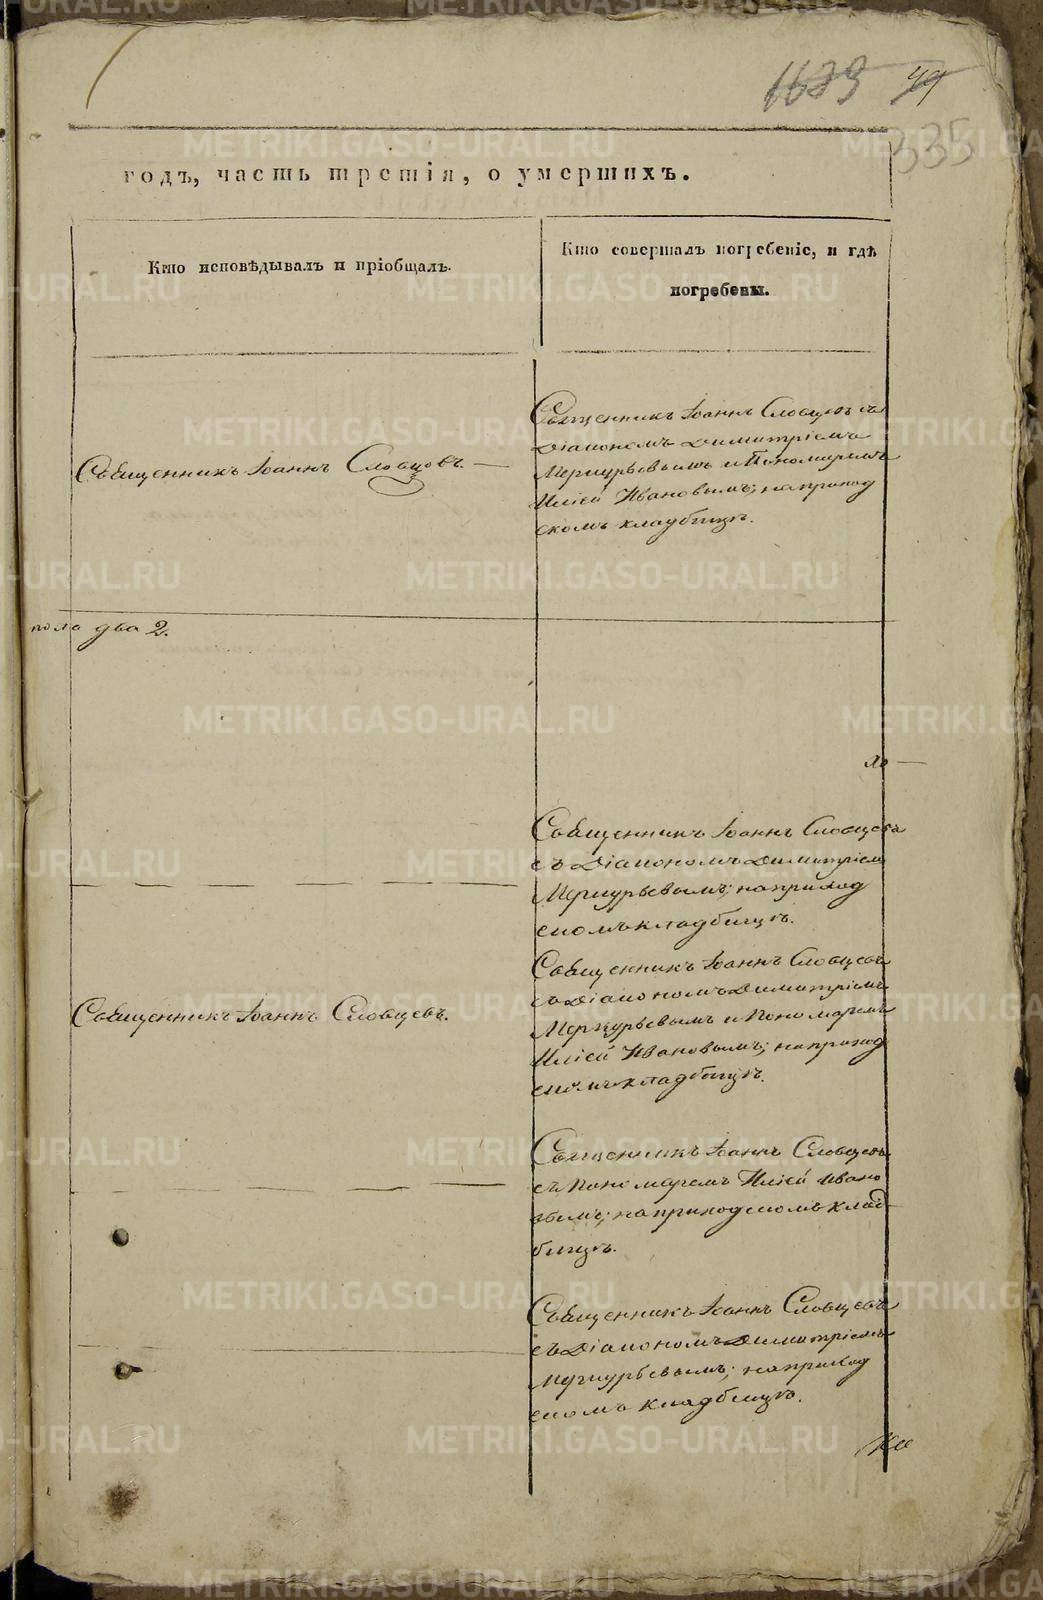 1689 49
335
годъ, часть третія, о умершихъ.
Кто исповѣдывалъ и пріобщалъ.
Кто совершалъ погребеніе, и гдѣ
погребены.
Священникъ Іоаннъ Словцовъ.
Священникъ Іоаннъ Словцовъ съ
Діакономъ Димитріемъ
Меркурьевымъ и Пономаремъ
Иліей Ивановымъ; на приход
скомъ кладбищѣ.
пола два 2.
Священникъ Іоаннъ Словцевъ
съ Діакономъ Димитріемъ
Меркурьевымъ; на приход
скомъ кладбищѣ.
Священникъ Іоаннъ Словцевъ.
Священникъ Іоаннъ Словцевъ
съ Діакономъ Димитріемъ
Меркурьевымъ и Пономаремъ
Иліей Ивановымъ; на приход
скомъ кладбищѣ.
Священникъ Іоаннъ Словцевъ
съ Пономаремъ Иліей Ивано
вымъ; на приходскомъ клад-
бищѣ.
Священникъ Іоаннъ Словцевъ
съ Діакономъ Димитріемъ
Меркурьевымъ; на приход
скомъ кладбищѣ.
METRIKI.GASO-URAL.RU